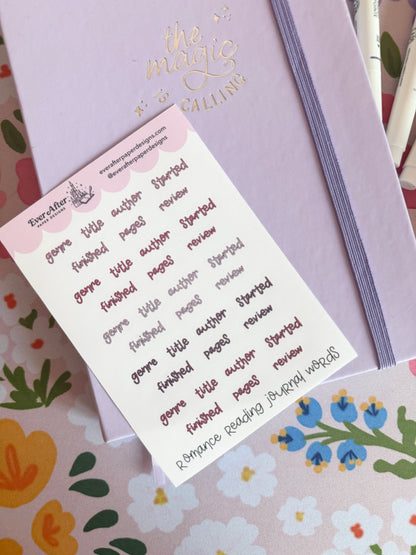 the
magic
is
CALLING
Ever After
PAPER DESIGNS
www.everafterpaperdesigns.com
@everafterpaperdesigns
genre title author started
finished pages review
genre title author started
finished pages review
genre title author started
finished pages review
genre title author started
finished pages review
genre title author started
finished pages review
ROMANCE READING JOURNAL WORDS